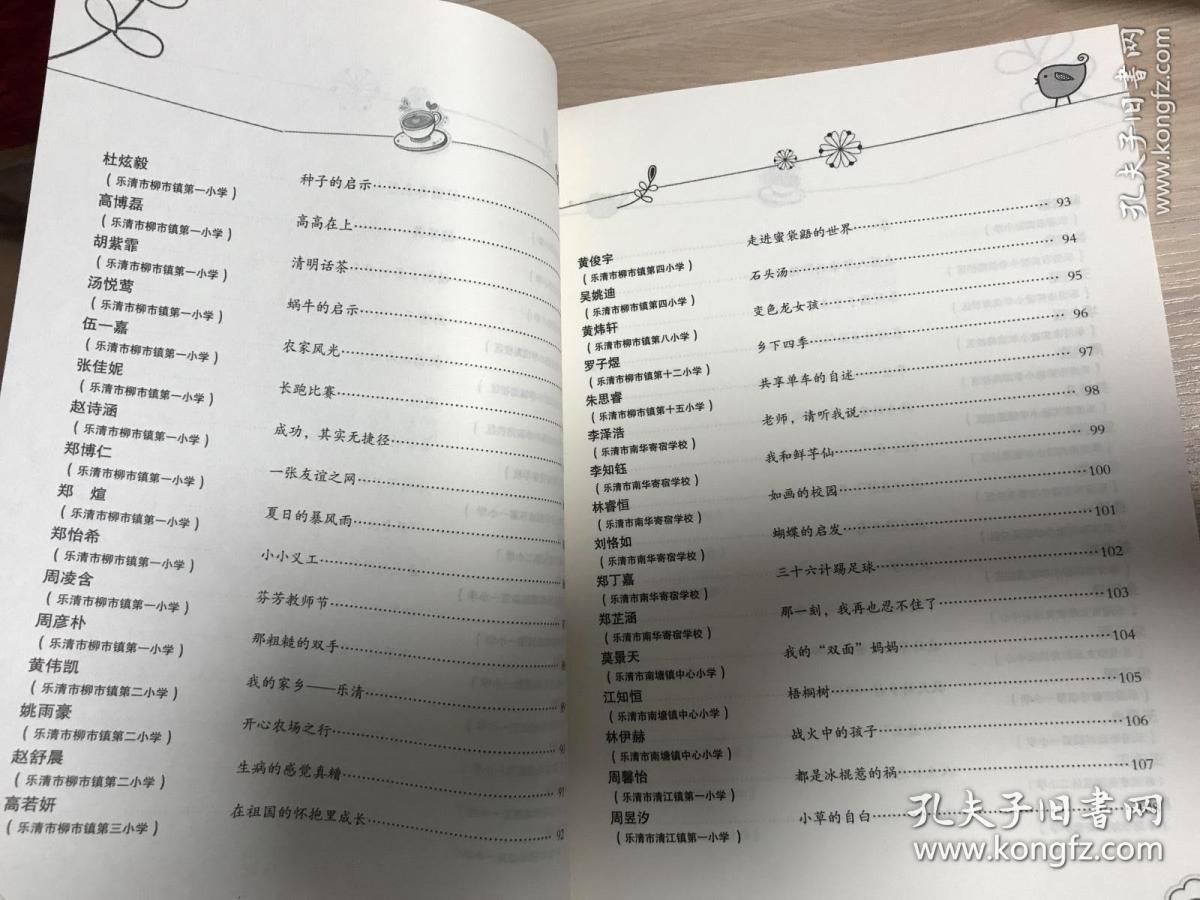 杜炫毅
（乐清市柳市镇第一小学） 种子的启示
高博磊
（乐清市柳市镇第一小学） 高高在上
胡紫霏
（乐清市柳市镇第一小学） 清明话茶
汤悦莺
（乐清市柳市镇第一小学） 蜗牛的启示
伍一嘉
（乐清市柳市镇第一小学） 农家风光
张佳妮
（乐清市柳市镇第一小学） 长跑比赛
赵诗涵
（乐清市柳市镇第一小学） 成功，其实无捷径
郑博仁
（乐清市柳市镇第一小学） 一张友谊之网
郑 煊
（乐清市柳市镇第一小学） 夏日的暴风雨
郑怡希
（乐清市柳市镇第一小学） 小小义工
周凌含
（乐清市柳市镇第一小学） 芬芳教师节
周彦朴
（乐清市柳市镇第一小学） 那粗糙的双手
黄伟凯
（乐清市柳市镇第二小学） 我的家乡——乐清
姚雨豪
（乐清市柳市镇第二小学） 开心农场之行
赵舒晨
（乐清市柳市镇第二小学） 生病的感觉真糟 91
高若妍
（乐清市柳市镇第三小学） 在祖国的怀抱里成长 92
走进蜜袋鼯的世界 93
黄俊宇
（乐清市柳市镇第四小学） 石头汤 94
吴姚迪
（乐清市柳市镇第四小学） 变色龙女孩 95
黄炜轩
（乐清市柳市镇第八小学） 乡下四季 96
罗子煜
（乐清市柳市镇第十二小学） 共享单车的自述 97
朱思睿
（乐清市柳市镇第十五小学） 老师，请听我说 98
李泽浩
（乐清市南华寄宿学校） 我和鲜芋仙 99
李知钰
（乐清市南华寄宿学校） 如画的校园 100
林睿恒
（乐清市南华寄宿学校） 蝴蝶的启发 101
刘恪如
（乐清市南华寄宿学校） 三十六计踢足球 102
郑丁嘉
（乐清市南华寄宿学校） 那一刻，我再也忍不住了 103
郑芷涵
（乐清市南华寄宿学校） 我的“双面”妈妈 104
莫景天
（乐清市南塘镇中心小学） 梧桐树 105
江知恒
（乐清市南塘镇中心小学） 战火中的孩子 106
林伊赫
（乐清市南塘镇中心小学） 都是冰棍惹的祸 107
周馨怡
（乐清市清江镇第一小学） 小草的自白
周昱汐
（乐清市清江镇第一小学）
孔夫子旧书网
www.kongfz.com
孔夫子旧书网
www.kongfz.com